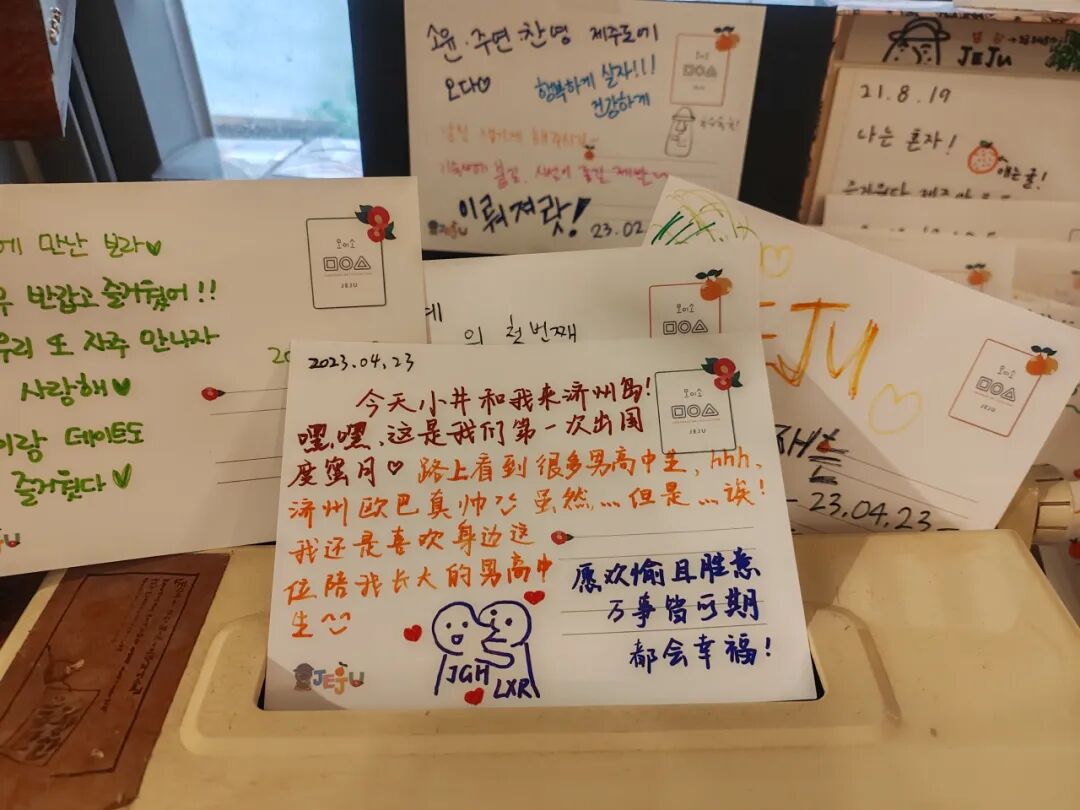 소윤·주연·찬영 제주도에
오다♡
행복하게 살자!!!
건강하게
이뤄져랏!
23.02
JEJU
오이소
JEJU
21.8.19
나는 혼자!
얘는귤!
에 만난 보라♥
반갑고 즐거웠어!!
우리 또 자주 만나자
사랑해♥
이랑 데이트도
즐거웠다♥
오이소
JEJU
의 첫번째
오이소
JEJU
오이소
JEJU
23.04.23
2023.04.23
今天小井和我来济州岛!
嘿,嘿,这是我们第一次出国
度蜜月♡ 路上看到很多男高中生,hhh、
济州欧巴真帅^^ 虽然...但是...诶!
我还是喜欢身边这
位陪我长大的男高中
生^^
愿欢愉且胜意
万事皆可期
都会幸福!
JGH
LXR
오이소
JEJU
JEJU